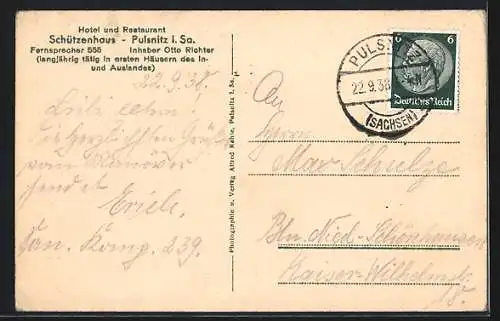 Hotel und Restaurant
Schützenhaus - Pulsnitz i. Sa.
Fernsprecher 555 Inhaber Otto Richter
(langjährig tätig in ersten Häusern des In-
und Auslandes)
22.9.38.
Die herzlichsten Grüße
vom Manöver
sendet
San. Komp. 239.
Photographie u. Verlag Alfred Kahle, Pulsnitz i. Sa.
PULSNITZ
22.9.38
(SACHSEN)
6 6
Deutsches Reich
An
Herrn
Max Schulze
Bln. Nied. Schönhausen
Kaiser-Wilhelmstr.